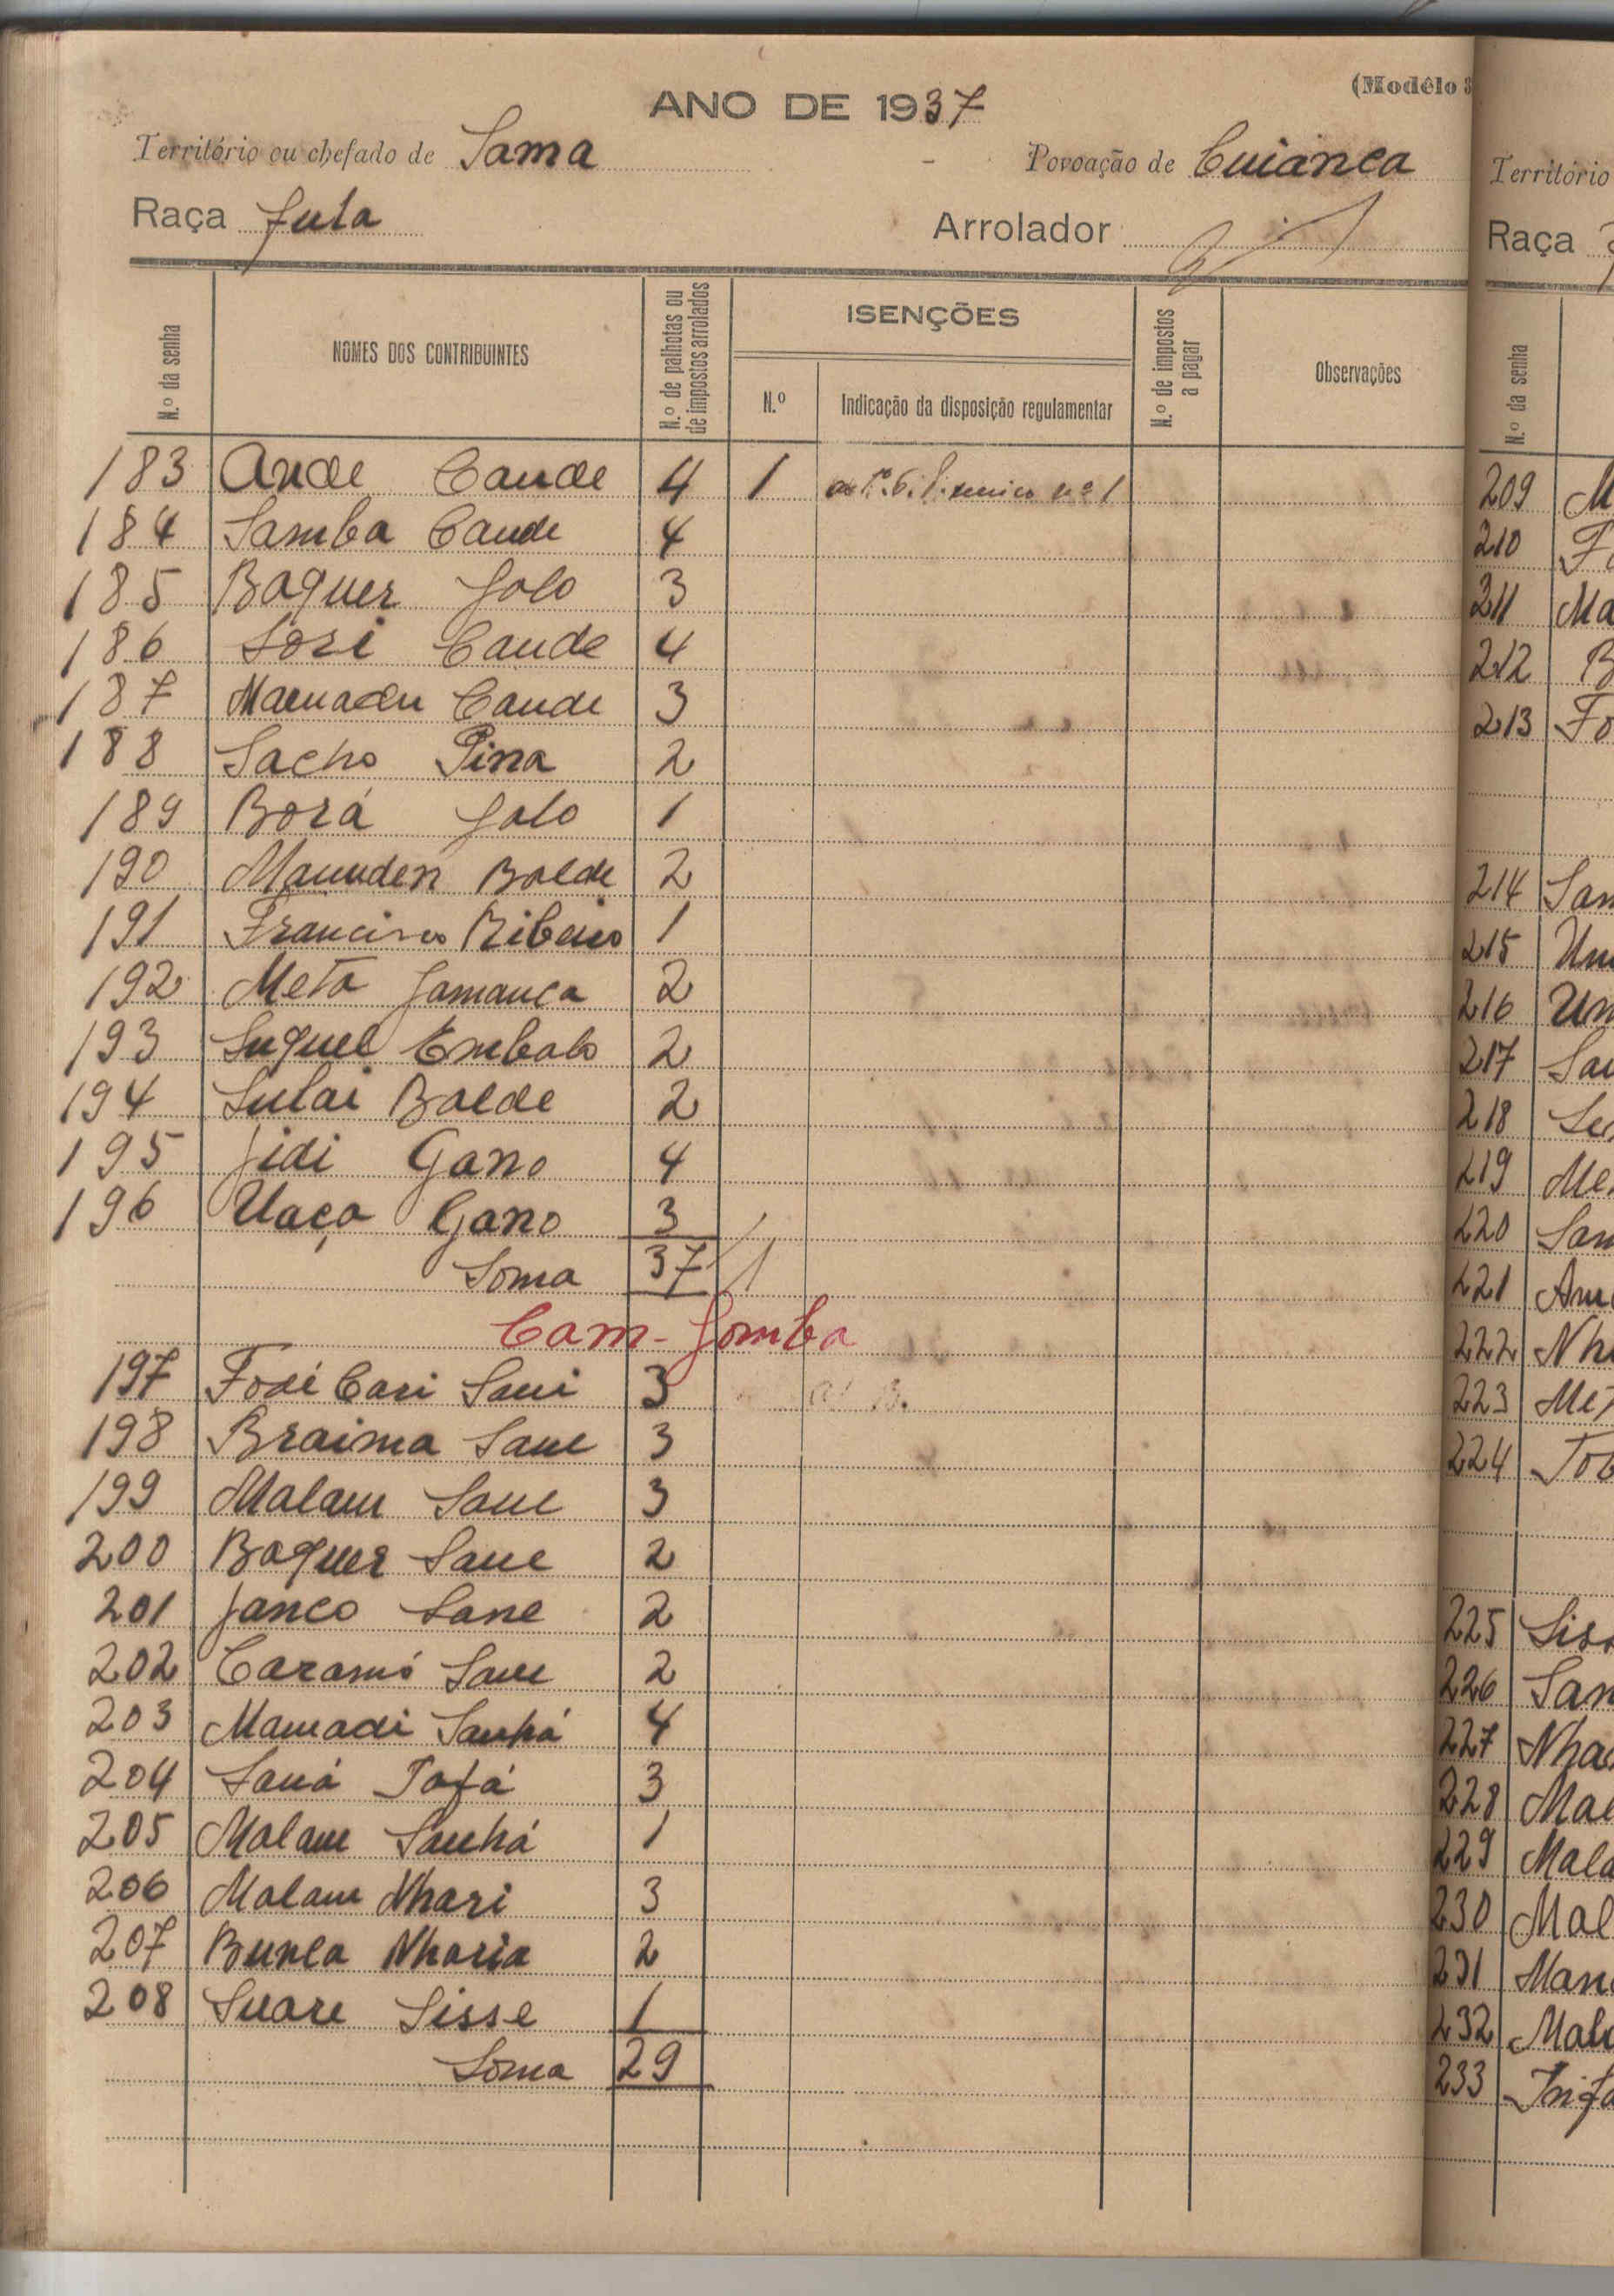 (Modêlo 3
ANO DE 1937
Território ou chefado de Sama - Povoação de Cuianca
Raça fula Arrolador
N.º da senha NOMES DOS CONTRIBUINTES N.º de palhotas ou de impostos arrolados ISENÇÕES N.º de impostos a pagar Observações
N.º Indicação da disposição regulamentar
183 Ande Cande 4 1 nº 1
184 Samba Cande 4
185 Baquer Jolo 3
186 Sori Cande 4
187 Mamadu Cande 3
188 Sacho Pina 2
189 Borá Jalo 1
190 Mamuden Balde 2
191 Francisco Ribeiro 1
192 Meta Jamanca 2
193 Suquel Embalo 2
194 Sulai Balde 2
195 Jidi Gano 4
196 Uaço Gano 3
Soma 37 1
Cam-Jomba
197 Fodé Cari Sani 3
198 Braima Sane 3
199 Malam Sane 3
200 Baquer Sane 2
201 Janco Sane 2
202 Caramó Sane 2
203 Mamadi Sanhá 4
204 Saná Tafá 3
205 Malam Sanhá 1
206 Malam Nhari 3
207 Bunca Nharia 2
208 Suare Sisse 1
Soma 29
Território
Raça
N.º da senha
209 M
210 F
211 Ma
212 B
213 Fo
214 Sam
215 Um
216 Un
217 Sa
218 Su
219 Me
220 Sam
221 Am
222 Nh
223 Me
224 To
225 Siss
226 San
227 Nha
228 Mal
229 Mala
230 Mal
231 Man
232 Mal
233 Infa